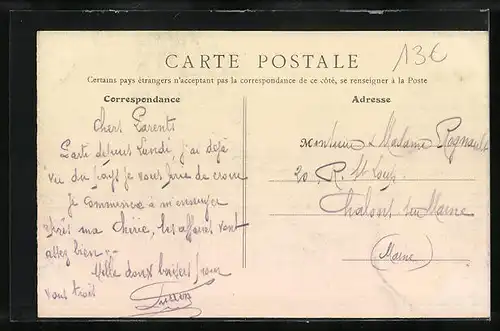 CARTE POSTALE
13€
Certains pays étrangers n'acceptant pas la correspondance de ce côté, se renseigner à la Poste
Correspondance
Adresse
Chers Parents
Partie depuis Lundi, j'ai déjà
vu du pays je vous prie de croire
Je commence à m'ennuyer
ma chérie, les affaires vont
assez bien
Mille doux baisers pour
vous trois
Monsieur & Madame
20 R. St
Chalons sur Marne
(Marne)